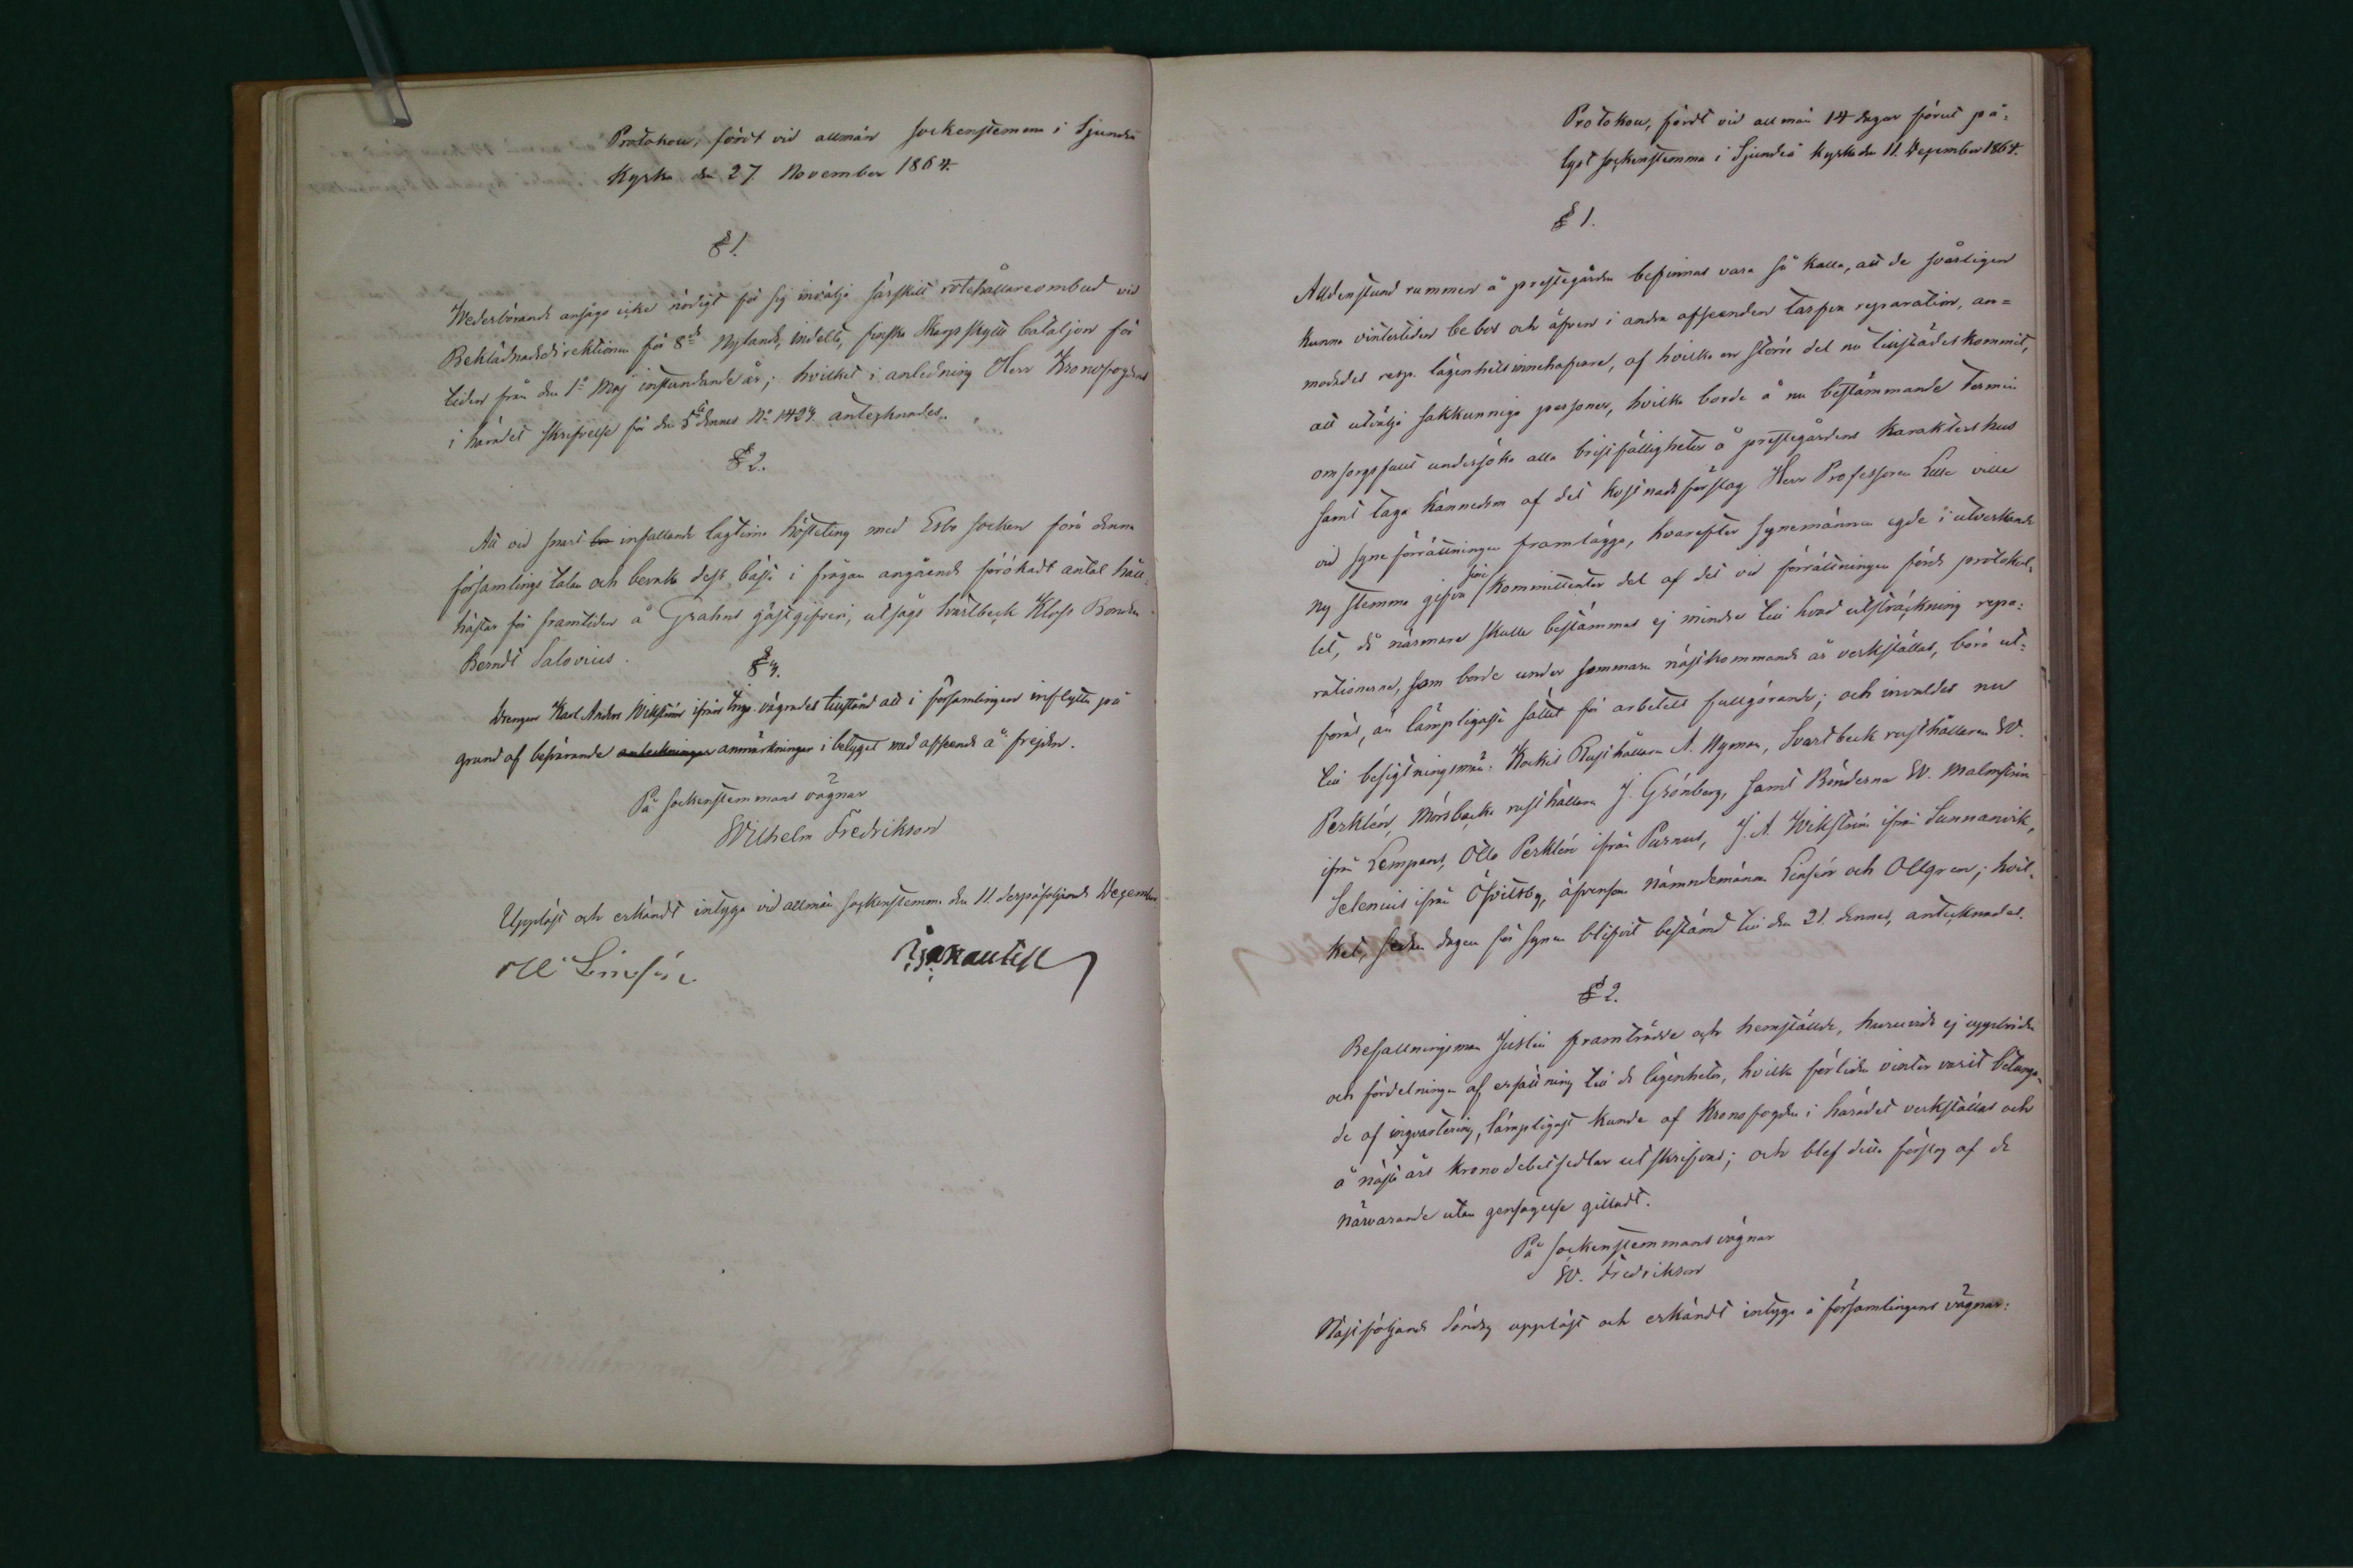 Protokoll, fördt vid allmän sockenstemma i Sjundeå
Kyrka den 27. November 1864.
§ 1.
Wederbörande ansågo icke nödigt för sig invälja särskilt rotehållareombud vid
Beklädnadsdirektionen för 8de Nylands, indelta, finska Skarpskytte bataljon för
tiden från den 1a Maj instundande år; hvilket i anledning Herr Kronofogdens
i häradet skrifvelse för den 5te dennes No 1424 antecknades.
§ 2.
Att vid snart infallande lagtima hösteting med Esbo socken föra denna
församlings talan och bevaka dess bästa i frågan angående förökadt antal håll-
hästar för framtiden å Grahns gästgifveri, utsågs Svartbeck Kloss Bonden
Berndt Salovius.
§ 3.
Drengen Karl Anders Wikström ifrån Ingo vägrades tillstånd att i församlingen inflytta på
grund af besvärande anteckningar anmärkningar i betyget med afseende å frejden.
På sockenstemmans vägnar
Wilhelm Fredrikson
Uppläst och erkändt intyga vid allmän sockenstemma den 11. derpåföljande December
Protokoll, fördt vid allmän 14 dagar förut på-
lyst sockenstemma i Sjundeå Kyrka den 11. December 1864.
§ 1.
Alldenstund rummen å prestegården befinnas vara så kalla, att de svårligen
kunna vintertiden bebos och äfven i andra afseenden tarfva reparation, an-
modades resp. lägenhetsinnehafvare, af hvilka en större del nu tillstädes kommit,
att utvälja sakkunniga personer, hvilka borde å nu bestämmande termin
omsorgsfullt undersöka alla bristfälligheter å prestegårdens karaktershus
samt taga kännedom af det kostnadsförslag Herr Professoren Lille ville
vid syneförrättningen framlägga, hvarefter synemännen egde i utverkande
ny stemma gifva sine Kommittenter del af det vid förrättningen förda protokol-
let, då närmare skulle bestämmas ej mindre till hvad utsträckning repa-
rationerna, som borde under sommaren nästkommande år verkställas, böra ut-
föras, än lämpligaste sättet för arbetets fullgörande; och invaldes nu
till besigtningsmän: Kockis Rusthållaren A. Nyman, Svartbeck rusthållaren W.
Perklén, Mörsbacka rusthållaren J. Grönberg, samt Bönderna W. Malmström
ifrån Lempans, Otto Perklén ifrån Purnus, J. A. Wikström ifrån Sunnanvik,
Selenius ifrån Öfvitsby, äfvensom Nämndemännen Linsén och Ollgren; hvil-
ket, sedan dagen för synen blifvit bestämd till den 21. dennes, antecknades.
§ 2.
Befallningsman Juslin framträdde och hemställde, huruvida ej uppbörden
och fördelningen af ersättning till de lägenheter, hvilka förliden vinter varit betunga-
de af inqvartering, lämpligast kunde af Kronofogden i häradet verkställas och
å nästa års kronodebetsedlar utskrifvas; och blef detta förslag af de
närvarande utan gensägelse gilladt.
På sockenstemmans vägnar
W. Fredrikson
Nästföljande Söndag uppläst och erkändt intyga å församlingens vägnar: